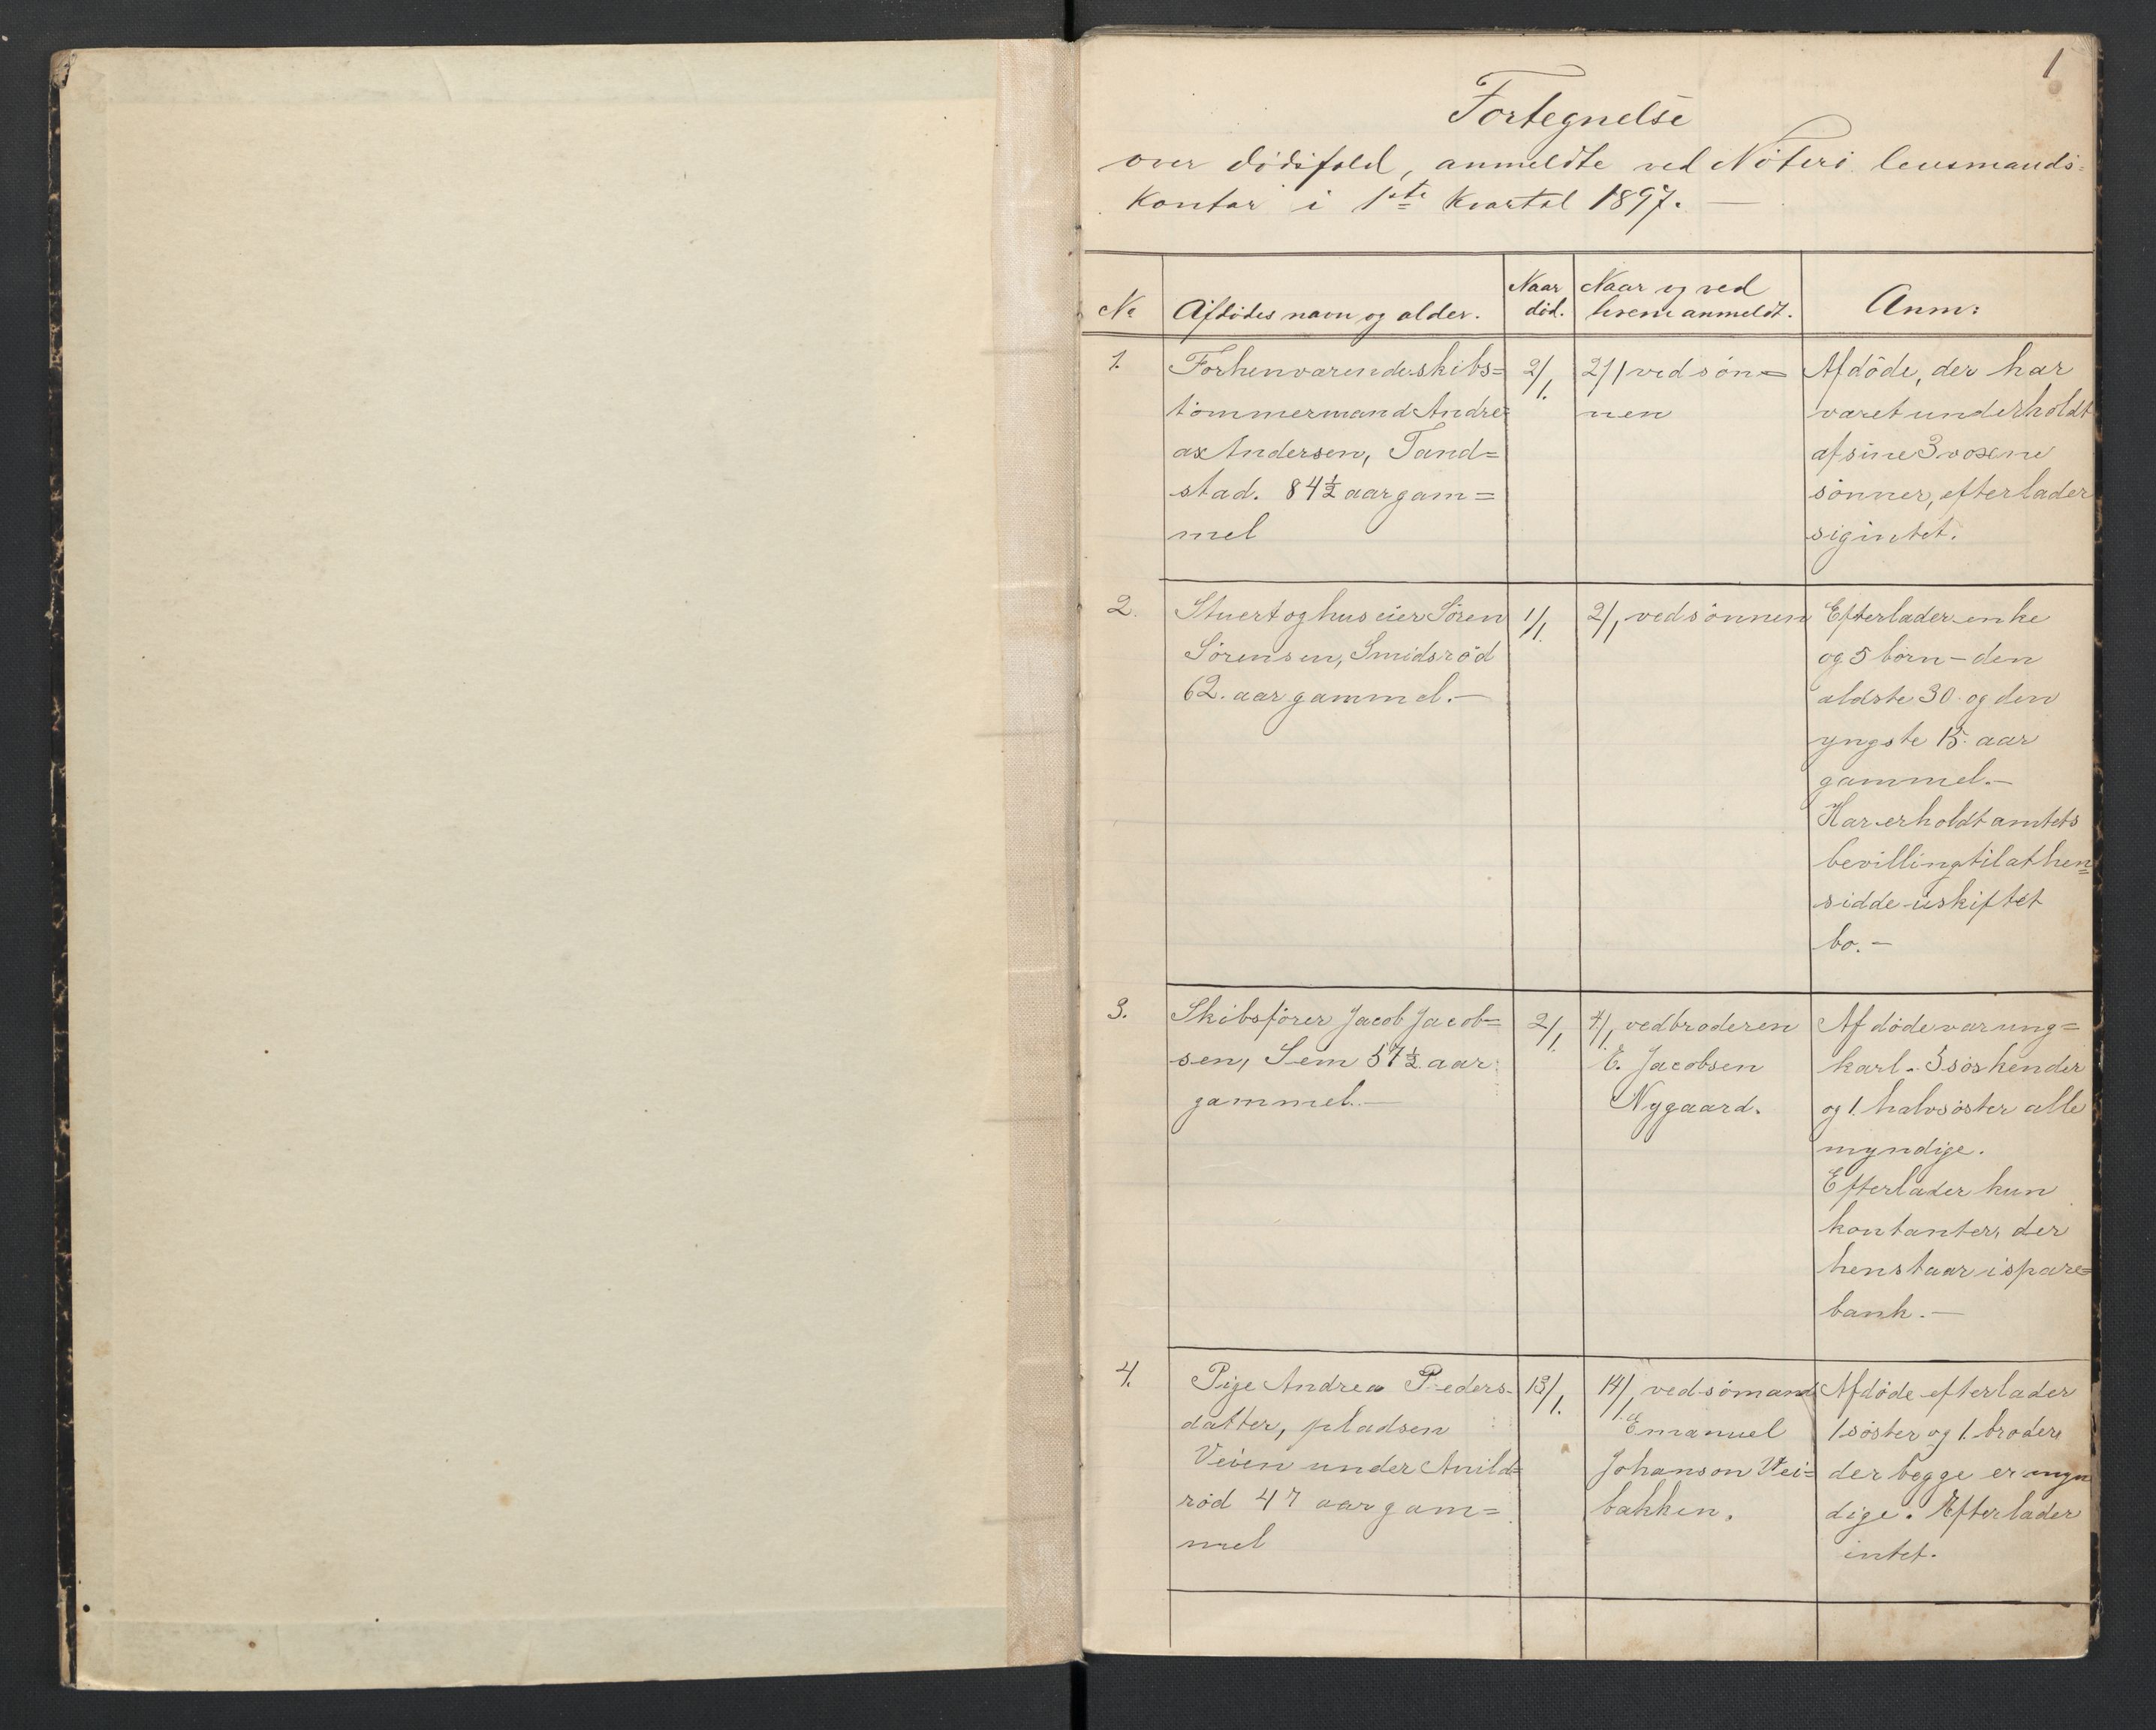 1
Fortegnelse
over dödsfald, anmeldte ved Nöterö lensmands=
kontor i 1ste kvartal 1897. —
No
Afdödes navn og alder.
Naar
död.
Naar og ved
hvem anmeldt.
Anm:
1.
Forhenværende skibs=
tömmermand Andre=
as Andersen, Tand=
stad. 84½ aar gam=
mel
2/1.
2/1 ved sön=
nen
Afdöde, der har
været underholdt
af sine 3 voxne
sönner, efterlader
sig intet.
2.
Stuert og huseier Sören
Sörensen, Smidsröd
62. aar gammel. —
1/1.
2/1 ved sönnen
Efterlader enke
og 5 börn – den
ældste 30 og den
yngste 15. aar
gammel. —
Har erholdt amtets
bevilling til at hen=
sidde i uskiftet
bo. —
3.
Skibsförer Jacob Jacob=
sen, Sem 57½ aar
gammel. —
2/1.
4/1. ved broderen
E. Jacobsen
Nygaard.
Afdöde var ung=
karl. 5 söskender
og 1. halvsöster alle
myndige.
Efterlader kun
kontanter, der
henstaar i spare=
bank. —
4.
Pige Andrea Peders-
datter, pladsen
Veien under Anild=
röd 47 aar gam=
mel
13/1.
14/1. ved sömand
Emanuel
Johanson Vei=
bakken.
Afdöde efterlader
1 söster og 1. broder
der begge er myn
dige. Efterlader
intet.